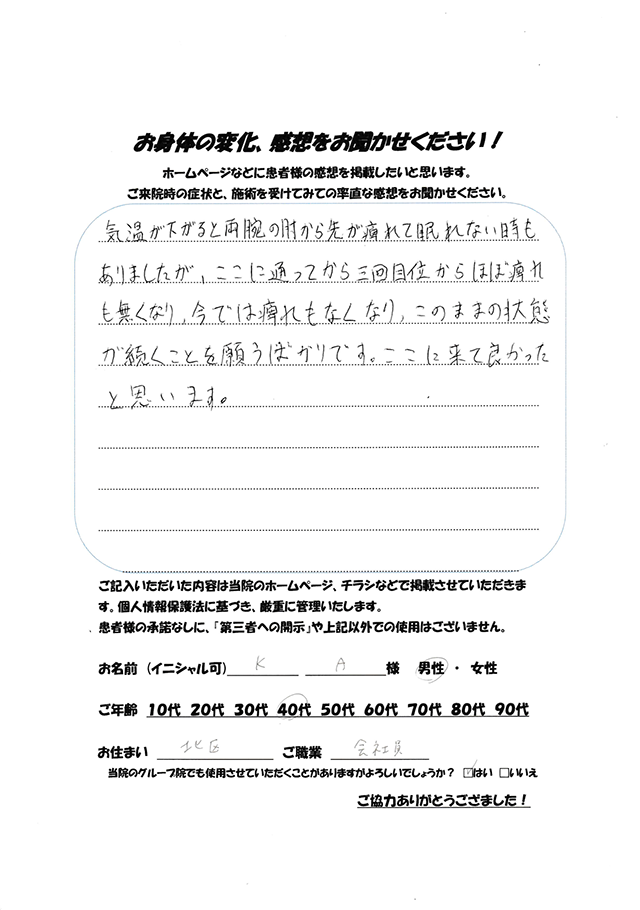 お身体の変化、感想をお聞かせください！
ホームページなどに患者様の感想を掲載したいと思います。
ご来院時の症状と、施術を受けてみての率直な感想をお聞かせください。
気温が下がると両腕の肘から先が痺れて眠れない時も
ありましたが、ここに通ってから三回目位からほぼ痺れ
も無くなり、今では痺れもなくなり、このままの状態
が続くことを願うばかりです。ここに来て良かった
と思います。
ご記入いただいた内容は当院のホームページ、チラシなどで掲載させていただきま
す。個人情報保護法に基づき、厳重に管理いたします。
患者様の承諾なしに、「第三者への開示」や上記以外での使用はございません。
お名前（イニシャル可） K A 様 男性 ・ 女性
ご年齢 10代 20代 30代 40代 50代 60代 70代 80代 90代
お住まい 北区 ご職業 会社員
当院のグループ院でも使用させていただくことがありますがよろしいでしょうか？ ☑はい □いいえ
ご協力ありがとうござました！